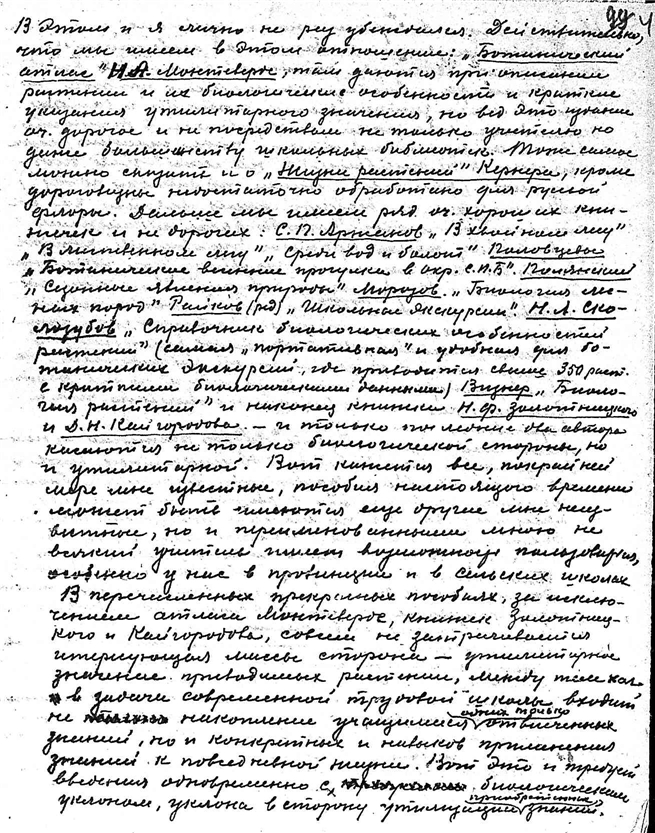 99 4
В этом и я лично не раз убеждался. Действительно,
что мы имеем в этом отношении: „Ботанический
атлас" Н.А. Монтеверде, там даются при описании
растений и их биологические особенности и краткие
указания утилитарного значения, но ведь это издание
оч. дорогое и не по средствам не только учителю но
даже большинству школьных библиотек. Тоже самое
можно сказать и о „Жизни растений" Кернера, кроме
дороговизны недостаточно обработано для русской
флоры. Дальше мы имеем ряд оч. хороших кни-
жечек и не дорогих: С.П. Аржанов „В хвойном лесу"
„В лиственном лесу", „Среди вод и болот" Половцева
„Ботанические весенние прогулки в окр. С.П.Б" Полянский
„Сезонные явления природы" Морозов „Биология лес-
ных пород" Райков (ред) „Школьные экскурсии". Н.Л. Ска-
лозубов „Справочник биологических особенностей
растений" (самая „портативная" и удобная для бо-
танических экскурсий, где приводится свыше 350 раст.
с краткими биологическими данными) Визнер „Биоло-
гия растений" и наконец книжки Н.Ф. Золотницкого
и Д.Н. Кайгородова — и только последние два автора
касаются не только биологической стороны, но
и утилитарной. Вот кажется все, по крайней
мере мне известные, пособия настоящего времени
может быть имеются еще другие мне неиз-
вестные, но и переименованными мною не
всякий учитель имеет возможность пользоваться,
особенно у нас в провинции и в сельских школах
В перечисленных прекрасных пособиях, за исклю-
чением атласа Монтеверде, книжек Золотниц-
кого и Кайгородова, совсем не затрагивается
интересующая массы сторона — утилитарное
значение приводимых растений, между тем как
в задачи современной трудовой школы входит
не накопление учащимися одних только отвлеченных
знаний, но и конкретных и навыков применения
знаний к повседневной жизни. Вот это и требует
введения одновременно с биологическим
уклоном, уклона в сторону утилизации приобретенных знаний.